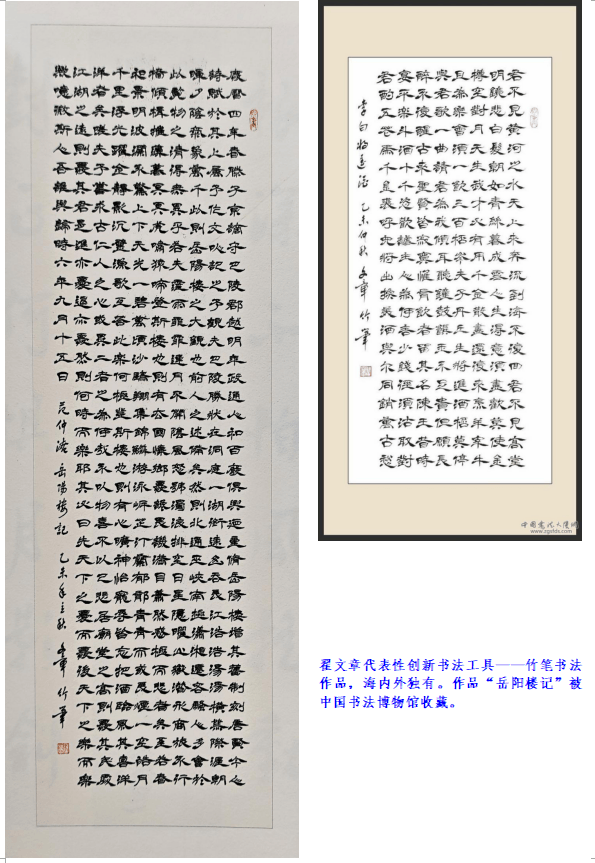 慶曆四年春滕子京謫守巴陵郡越明年政通人和百廢俱興迺重脩岳陽樓增其舊制刻唐賢今人
詩賦於其上屬予作文以記之予觀夫巴陵勝狀在洞庭一湖銜遠山吞長江浩浩湯湯橫無際涯朝
暉夕陰氣象萬千此則岳陽樓之大觀也前人之述備矣然則北通巫峽南極瀟湘遷客騷人多會於
此覽物之情得無異乎若夫霪雨霏霏連月不開陰風怒號濁浪排空日星隱曜山岳潛形商旅不行
檣傾楫摧薄暮冥冥虎嘯猿啼登斯樓也則有去國懷鄉憂讒畏譏滿目蕭然感極而悲者矣至若春
和景明波瀾不驚上下天光一碧萬頃沙鷗翔集錦鱗游泳岸芷汀蘭郁郁青青而或長煙一空皓月
千里浮光躍金靜影沉璧漁歌互答此樂何極登斯樓也則有心曠神怡寵辱皆忘把酒臨風其喜洋
洋者矣嗟夫予嘗求古仁人之心或異二者之為何哉不以物喜不以己悲居廟堂之高則憂其民處
江湖之遠則憂其君是進亦憂退亦憂然則何時而樂耶其必曰先天下之憂而憂後天下之樂而樂
歟噫微斯人吾誰與歸時六年九月十五日 范仲淹岳陽樓記 乙未年立秋 文章竹筆
君不見黃河之水天上來奔流到海不復回君不見高堂
明鏡悲白髮朝如青絲暮成雪人生得意須盡歡莫使金
樽空對月天生我材必有用千金散盡還復來烹羊宰牛
且為樂會須一飲三百杯岑夫子丹丘生將進酒杯莫停
與君歌一曲請君為我傾耳聽鐘鼓饌玉不足貴但願長
醉不復醒古來聖賢皆寂寞惟有飲者留其名陳王昔時
宴平樂斗酒十千恣歡謔主人為何言少錢徑須沽取對
君酌五花馬千金裘呼兒將出換美酒與爾同銷萬古愁
李白將進酒 乙未仲秋 文章竹筆
中国书法大师网
www.zgshfs.com
翟文章代表性创新书法工具——竹笔书法
作品，海内外独有。作品“岳阳楼记”被
中国书法博物馆收藏。